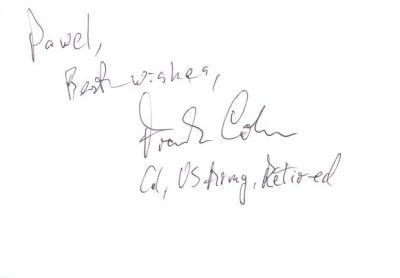 Pawel,
Best wishes,
Frank Cohn
Col, US Army, Retired